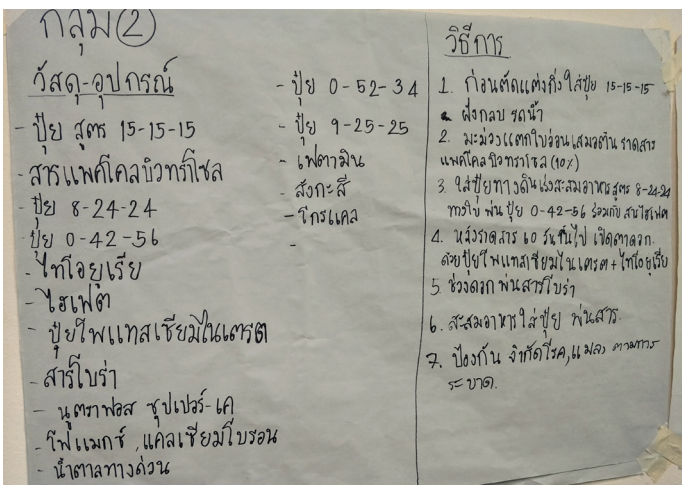 กลุ่ม ②
วัสดุ-อุปกรณ์
- ปุ๋ย สูตร 15-15-15
- สารแพคโคลบิวทร่าโซล
- ปุ๋ย 8-24-24
- ปุ๋ย 0-42-56
- ไทโอยูเรีย
- ไฮเฟต
- ปุ๋ยโพแทสเซียมไนเตรต
- สารโบร่า
- นูตราฟอส ซุปเปอร์-เค
- โฟแมกซ์, แคลเซียมโบรอน
- น้ำตาลทางด่วน
- ปุ๋ย 0-52-34
- ปุ๋ย 9-25-25
- เฟตามิน
- สังกะสี
- โกรแคล
-
วิธีการ
1. ก่อนตัดแต่งกิ่งใส่ปุ๋ย 15-15-15
ฝังกลบ รดน้ำ
2. มะม่วงแตกใบอ่อนเสมอต้น ราดสาร
แพคโคลบิวทราโซล (10%)
3. ใส่ปุ๋ยทางดินเร่งสะสมอาหารสูตร 8-24-24
ทางใบ พ่นปุ๋ย 0-42-56 ร่วมกับ สารไฮเฟต
4. หลังราดสาร 60 วันขึ้นไป เปิดตาดอก
ด้วยปุ๋ยโพแทสเซียมไนเตรต + ไทโอยูเรีย
5. ช่วงดอกพ่นสารโบร่า
6. สะสมอาหารใส่ปุ๋ย พ่นสาร.
7. ป้องกัน จำกัดโรค, แมลง ตามการ
ระบาด.